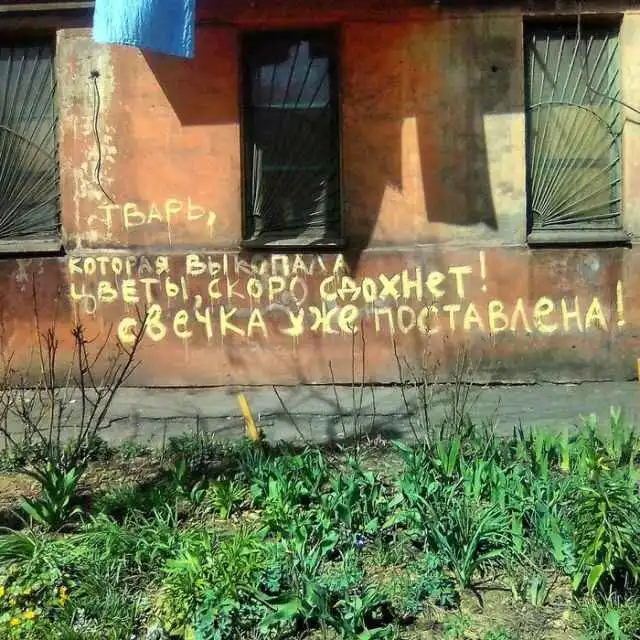 ТВАРЬ,
КОТОРАЯ ВЫКОПАЛА
ЦВЕТЫ, СКОРО СДОХНЕТ!
СВЕЧКА УЖЕ ПОСТАВЛЕНА!